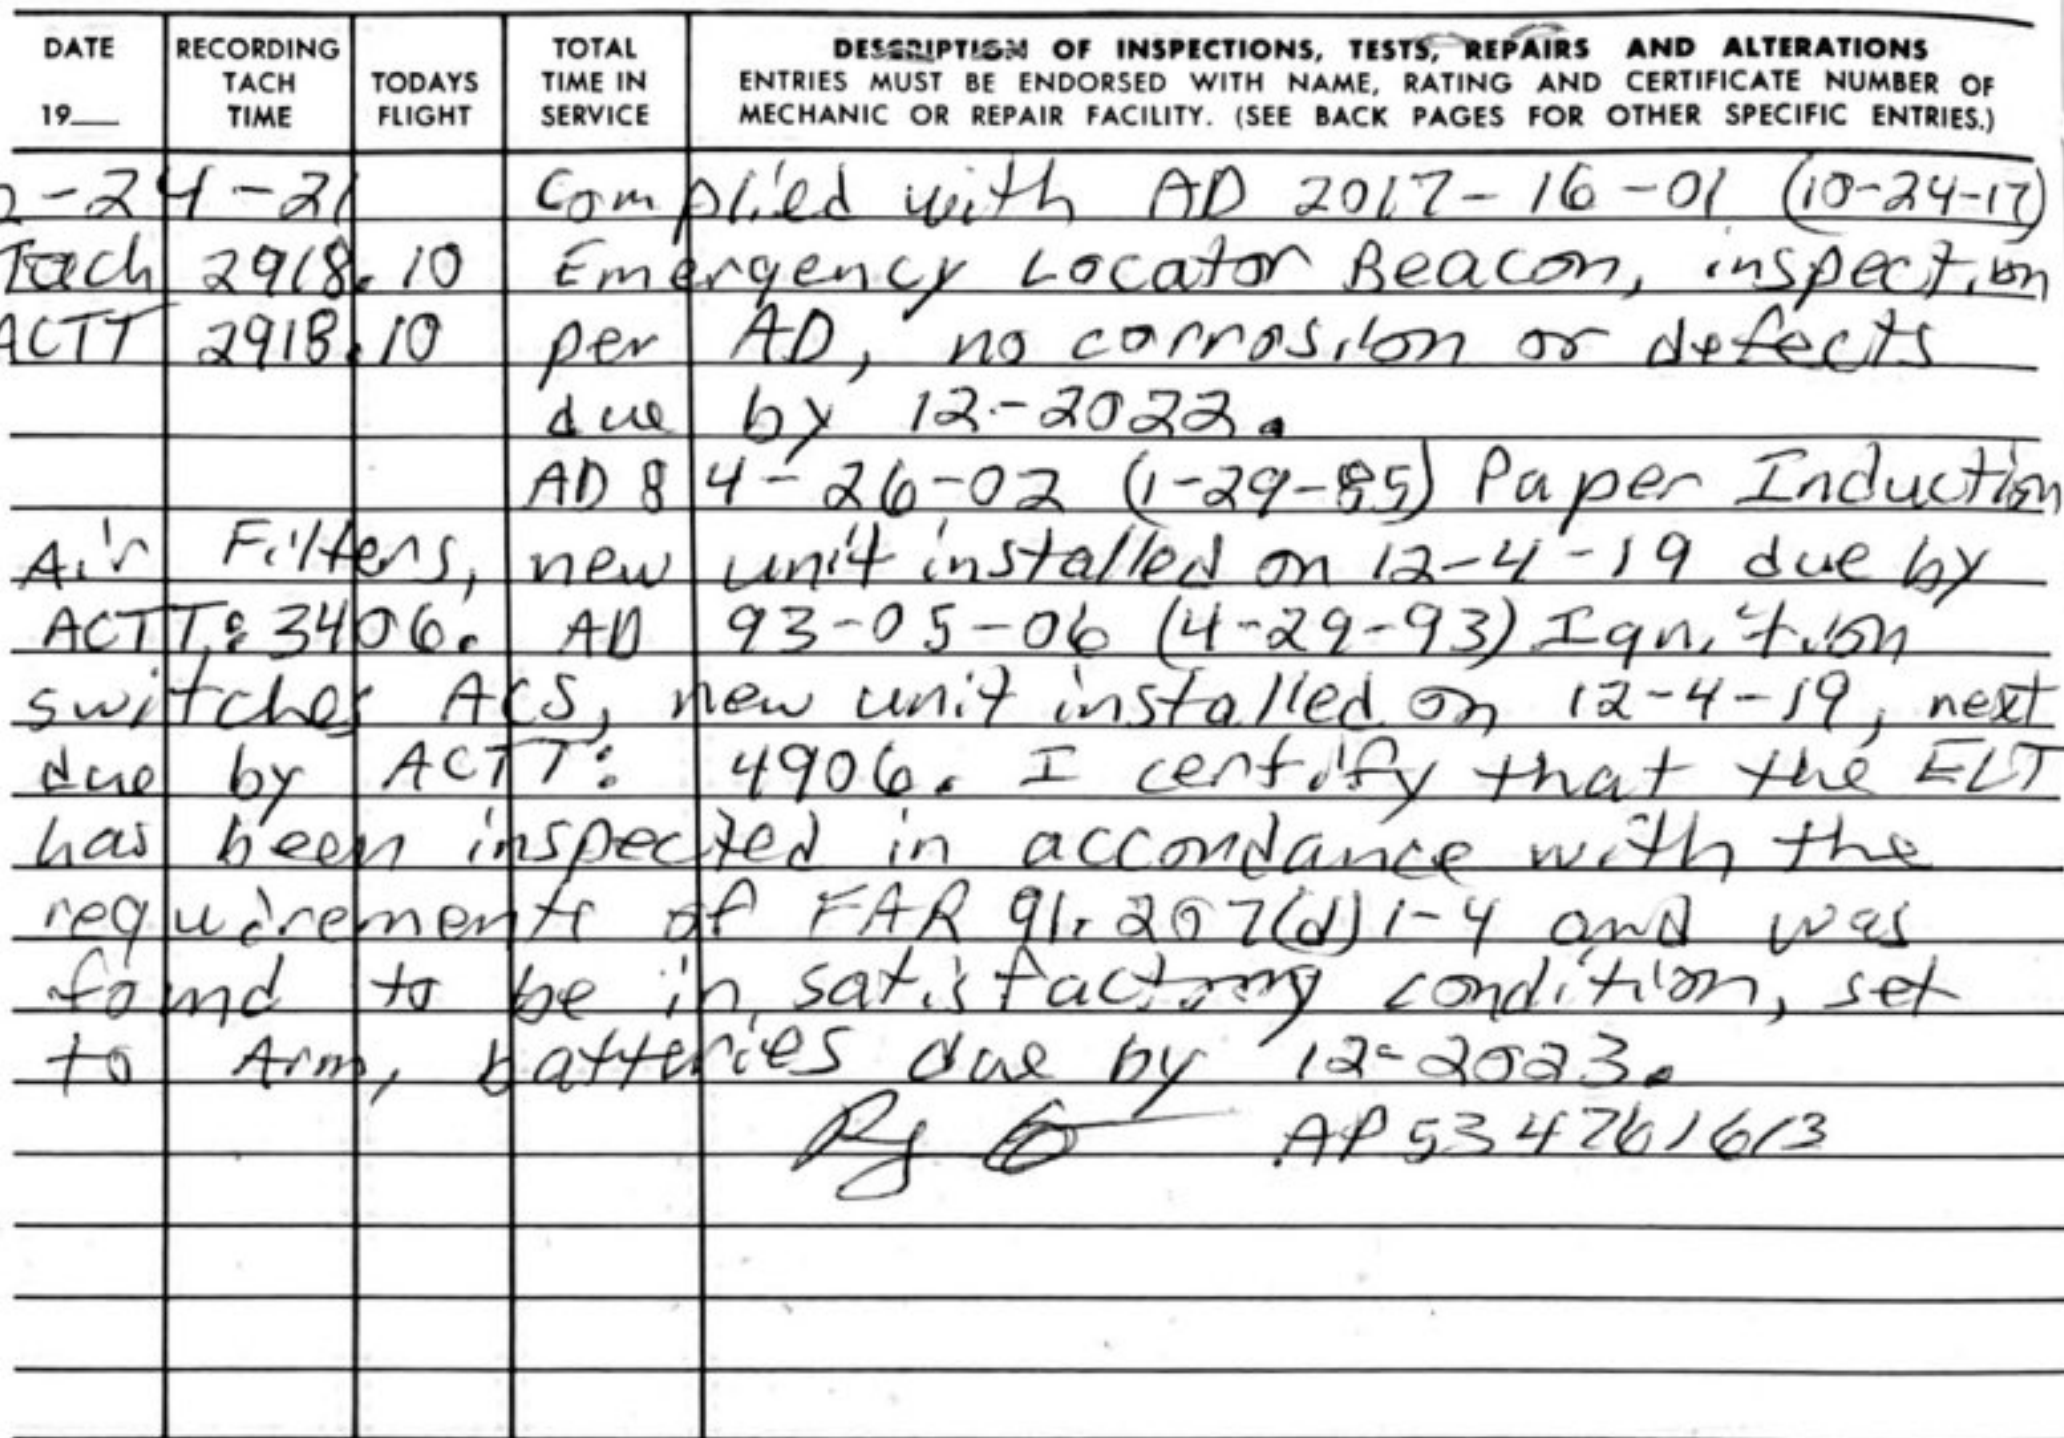 DATE RECORDING TACH TIME TODAYS FLIGHT TOTAL TIME IN SERVICE DESCRIPTION OF INSPECTIONS, TESTS, REPAIRS AND ALTERATIONS
19__ ENTRIES MUST BE ENDORSED WITH NAME, RATING AND CERTIFICATE NUMBER OF
MECHANIC OR REPAIR FACILITY. (SEE BACK PAGES FOR OTHER SPECIFIC ENTRIES.)
2-24-21 Complied with AD 2017-16-01 (10-24-17)
Tach 2918.10 Emergency Locator Beacon, inspection
ACTT 2918.10 per AD, no corrosion or defects
due by 12-2022.
AD 84-26-02 (1-29-85) Paper Induction
Air Filters, new unit installed on 12-4-19 due by
ACTT: 3406. AD 93-05-06 (4-29-93) Ignition
switches ACS, new unit installed on 12-4-19, next
due by ACTT: 4906. I certify that the ELT
has been inspected in accordance with the
requirements of FAR 91.207(d)1-4 and was
found to be in satisfactory condition, set
to Arm, batteries due by 12-2023.
AP534761613